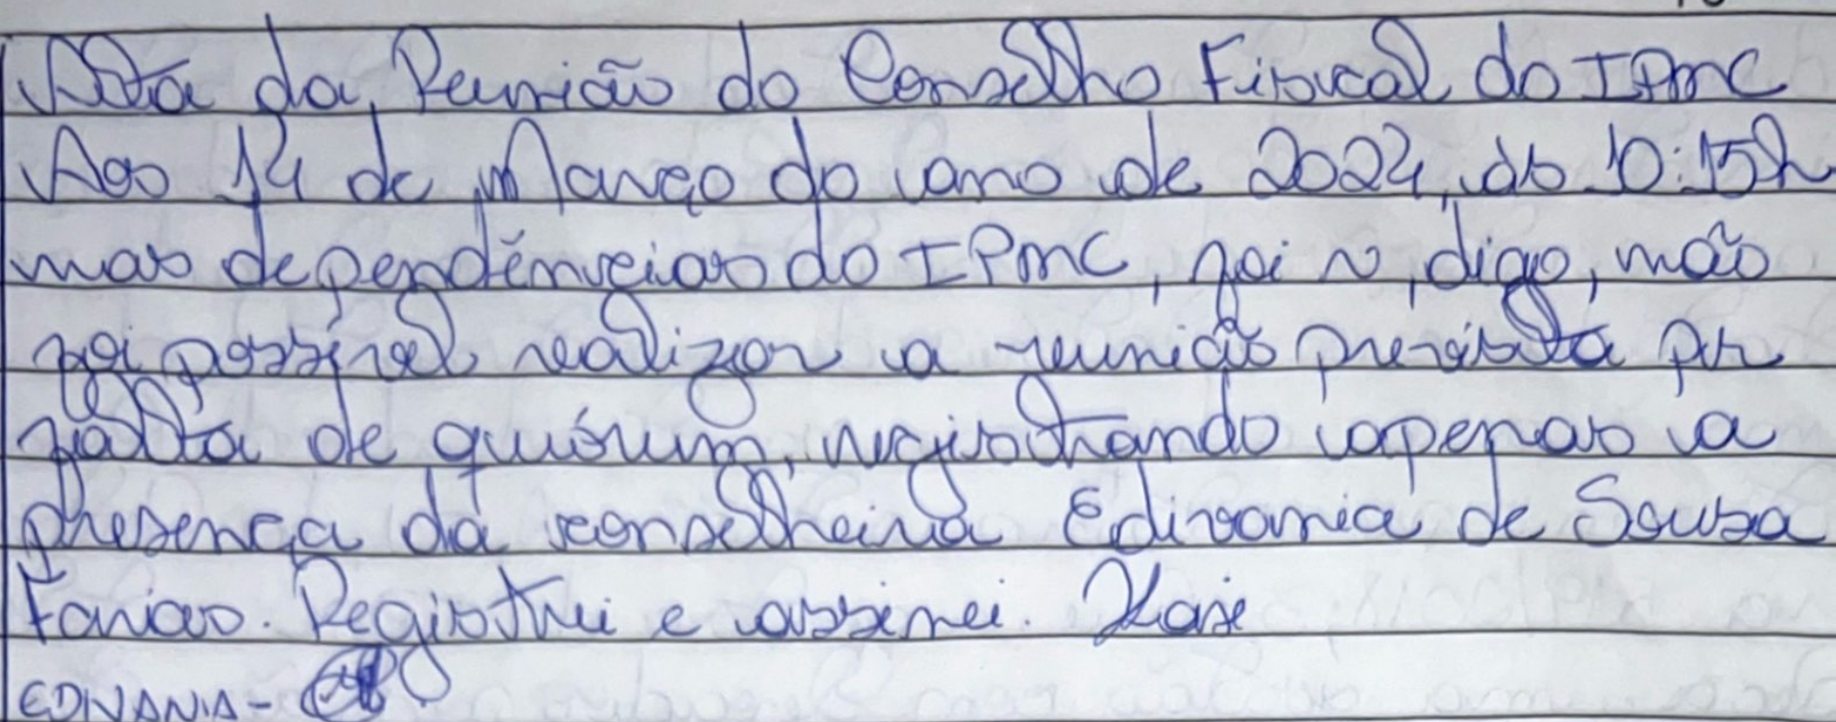 Ata da Reunião do Conselho Fiscal do IPMC
Aos 14 de Março do ano de 2024, às 10:15h
nas dependências do IPMC, foi n, digo, não
foi possível realizar a reunião prevista por
falta de quórum, registrando apenas a
presença da conselheira Edivania de Souza
Farias. Registrei e assinei.
EDIVANIA -